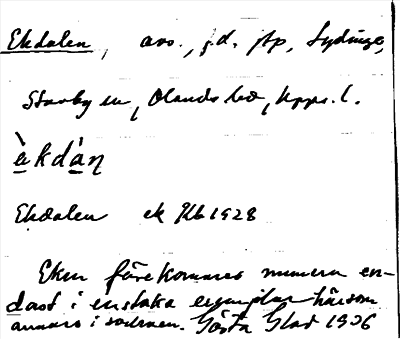 Ekdalen, avs., f.d. stp, Lydinge,
Stavby sn, Olands hd, Upps. l.
àkdàn
Ekdalen ek Kb 1928
Eken förekommer numera en-
dast i enstaka exemplar härsom
annars i socknen. Gösta Glad 1936